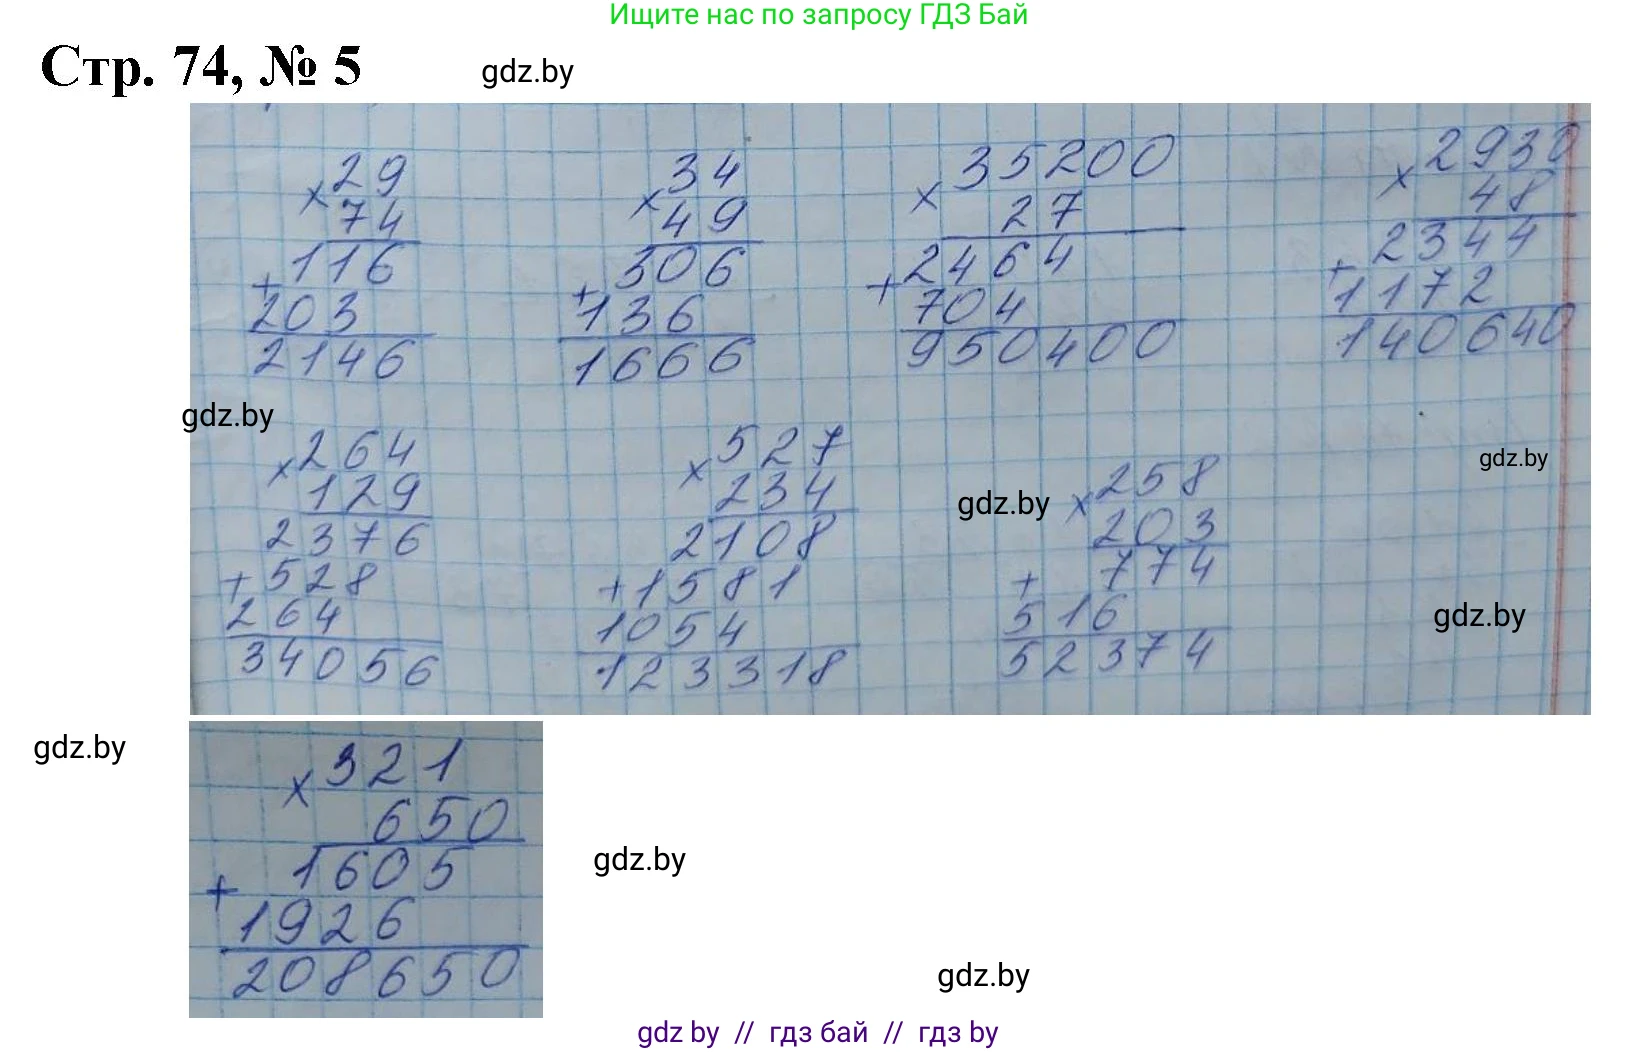 Ищите нас по запросу ГДЗ Бай
Стр. 74, № 5
gdz.by
× 29
74
116
+
203
2146
× 34
49
306
+
136
1666
× 35200
27
2464
+
704
950400
× 2930
48
2344
+
1172
140640
gdz.by
× 264
129
2376
+ 528
264
34056
× 527
234
2108
+ 1581
1054
123318
gdz.by
× 258
203
774
+
516
52374
gdz.by
gdz.by
gdz.by
× 321
650
1605
+
1926
208650
gdz.by
gdz.by
gdz by // гдз бай // гдз by